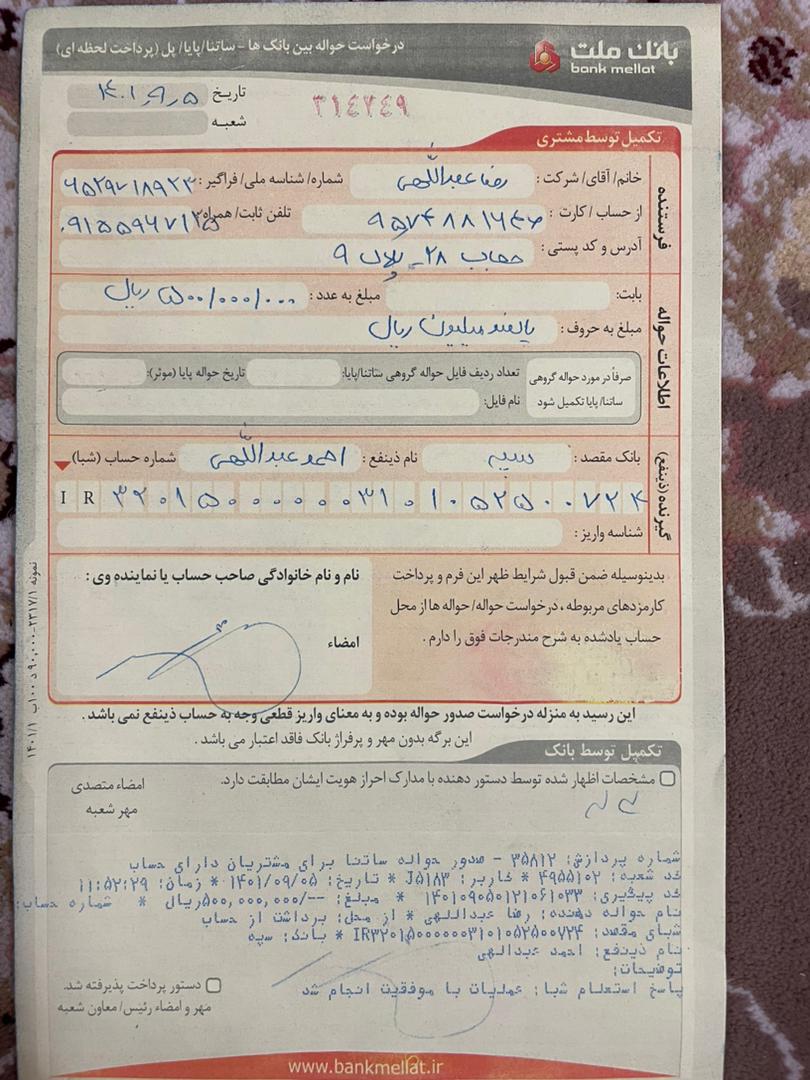 بانک ملت
bank mellat
درخواست حواله بین بانک ها - ساتنا/پایا/ پل (پرداخت لحظه ای)
تاریخ ۱۴۰۱,۹,۵
شعبه
۳۱۴۷۴۹
تکمیل توسط مشتری
فرستنده
خانم/ آقای/ شرکت: رضا عبداللهی شماره/ شناسه ملی/ فراگیر: ۶۵۲۹۷۱۸۹۲۳
از حساب / کارت: تلفن ثابت/ همراه:
آدرس و کد پستی: حجاب ۲۸ـ پلاک ۹
اطلاعات حواله
بابت: مبلغ به عدد: ۵۰۰/۰۰۰/۰۰۰ ریال
مبلغ به حروف: پانصد میلیون ریال
صرفاً در مورد حواله گروهی ساتنا/ پایا تکمیل شود
تعداد ردیف فایل حواله گروهی ساتنا/پایا: تاریخ حواله پایا (موثر):
نام فایل:
گیرنده (ذینفع)
بانک مقصد: سپه نام ذینفع: احمد عبداللهی شماره حساب (شبا)
IR ۳۲۰۱۵۰۰۰۰۰۰۳۱۰۱۰۵۲۵۰۰۷۲۴
شناسه واریز:
بدینوسیله ضمن قبول شرایط ظهر این فرم و پرداخت
کارمزدهای مربوطه، درخواست حواله/ حواله ها از محل
حساب یادشده به شرح مندرجات فوق را دارم.
نام و نام خانوادگی صاحب حساب یا نماینده وی:
امضاء
این رسید به منزله درخواست صدور حواله بوده و به معنای واریز قطعی وجه به حساب ذینفع نمی باشد.
این برگه بدون مهر و پرفراژ بانک فاقد اعتبار می باشد.
تکمیل توسط بانک
مشخصات اظهار شده توسط دستور دهنده با مدارک احراز هویت ایشان مطابقت دارد.
امضاء متصدی
مهر شعبه
شماره پردازش: ۳۵۸۱۲ - صدور حواله ساتنا برای مشتریان دارای حساب
کد شعبه: ۴۹۵۵۱۰۲ * کاربر: J۵۱۸۳ * تاریخ: ۱۴۰۱/۰۹/۰۵ * زمان: ۱۱:۵۲:۲۹
کد پیگیری: ۱۴۰۱۰۹۰۵۰۱۲۱۰۶۱۰۳۳ * مبلغ: --/۵۰۰,۰۰۰,۰۰۰ریال * شماره حساب:
نام حواله دهنده: رضا عبداللهی * از محل: برداشت از حساب
شبای مقصد: IR۳۲۰۱۵۰۰۰۰۰۰۳۱۰۱۰۵۲۵۰۰۷۲۴ * بانک: سپه
نام ذینفع: احمد عبدالهی
توضیحات:
پاسخ استعلام شبا: عملیات با موفقیت انجام شد
دستور پرداخت پذیرفته شد.
مهر و امضاء رئیس/ معاون شعبه
www.bankmellat.ir